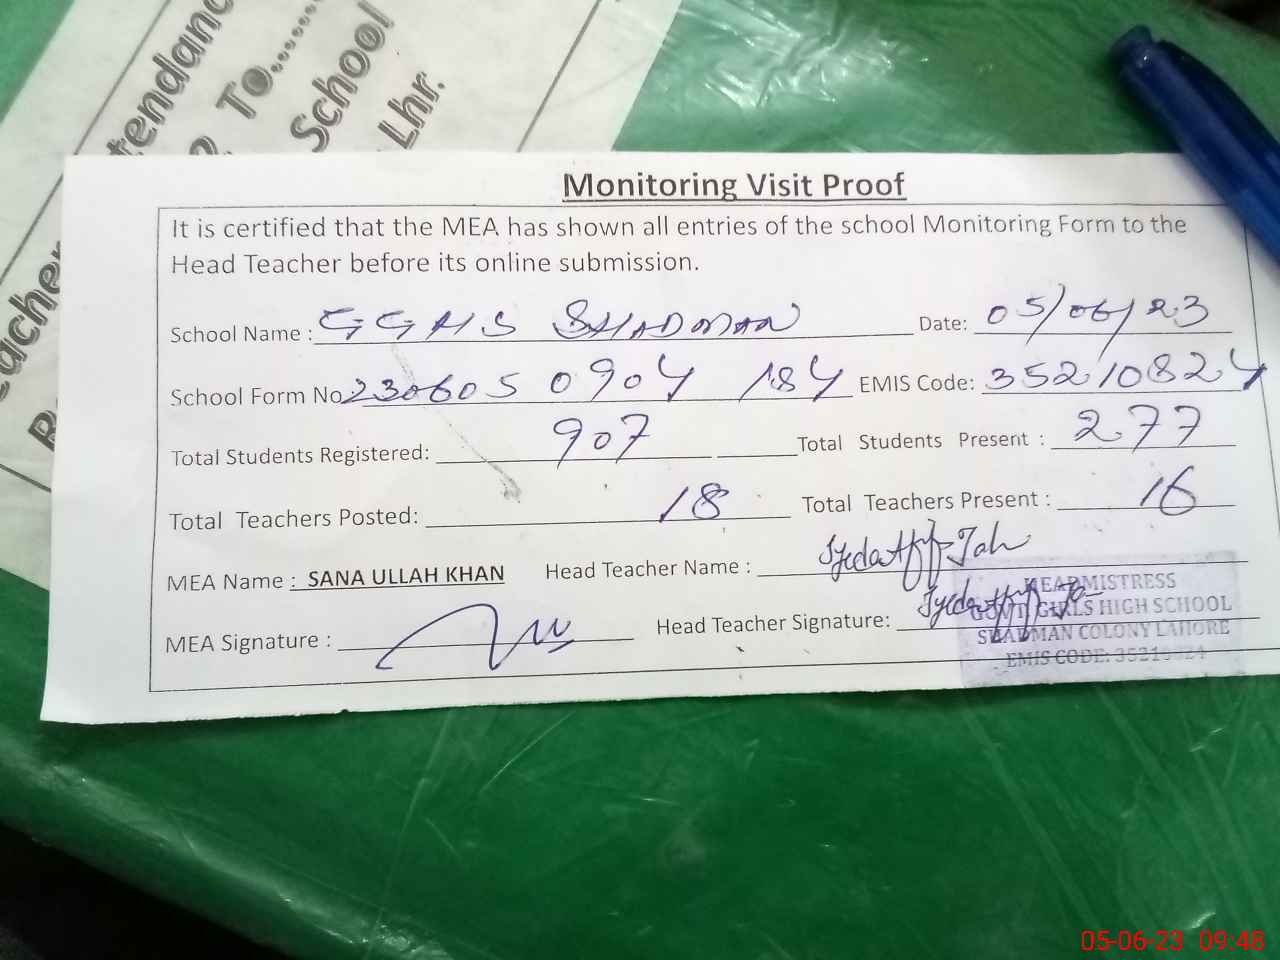 tendanc
To........
School
Lhr.
acher
Monitoring Visit Proof
It is certified that the MEA has shown all entries of the school Monitoring Form to the
Head Teacher before its online submission.
School Name : GGHS SHADMAN Date: 05/06/23
School Form No 230605 0904 184 EMIS Code: 35210824
Total Students Registered: 907 Total Students Present : 277
Total Teachers Posted: 18 Total Teachers Present : 16
MEA Name : SANA ULLAH KHAN Head Teacher Name : Syeda
MEA Signature : Head Teacher Signature: Syeda
HEADMISTRESS
GOVT. GIRLS HIGH SCHOOL
SHADMAN COLONY LAHORE
EMIS CODE: 35210824
05-06-23 09:48